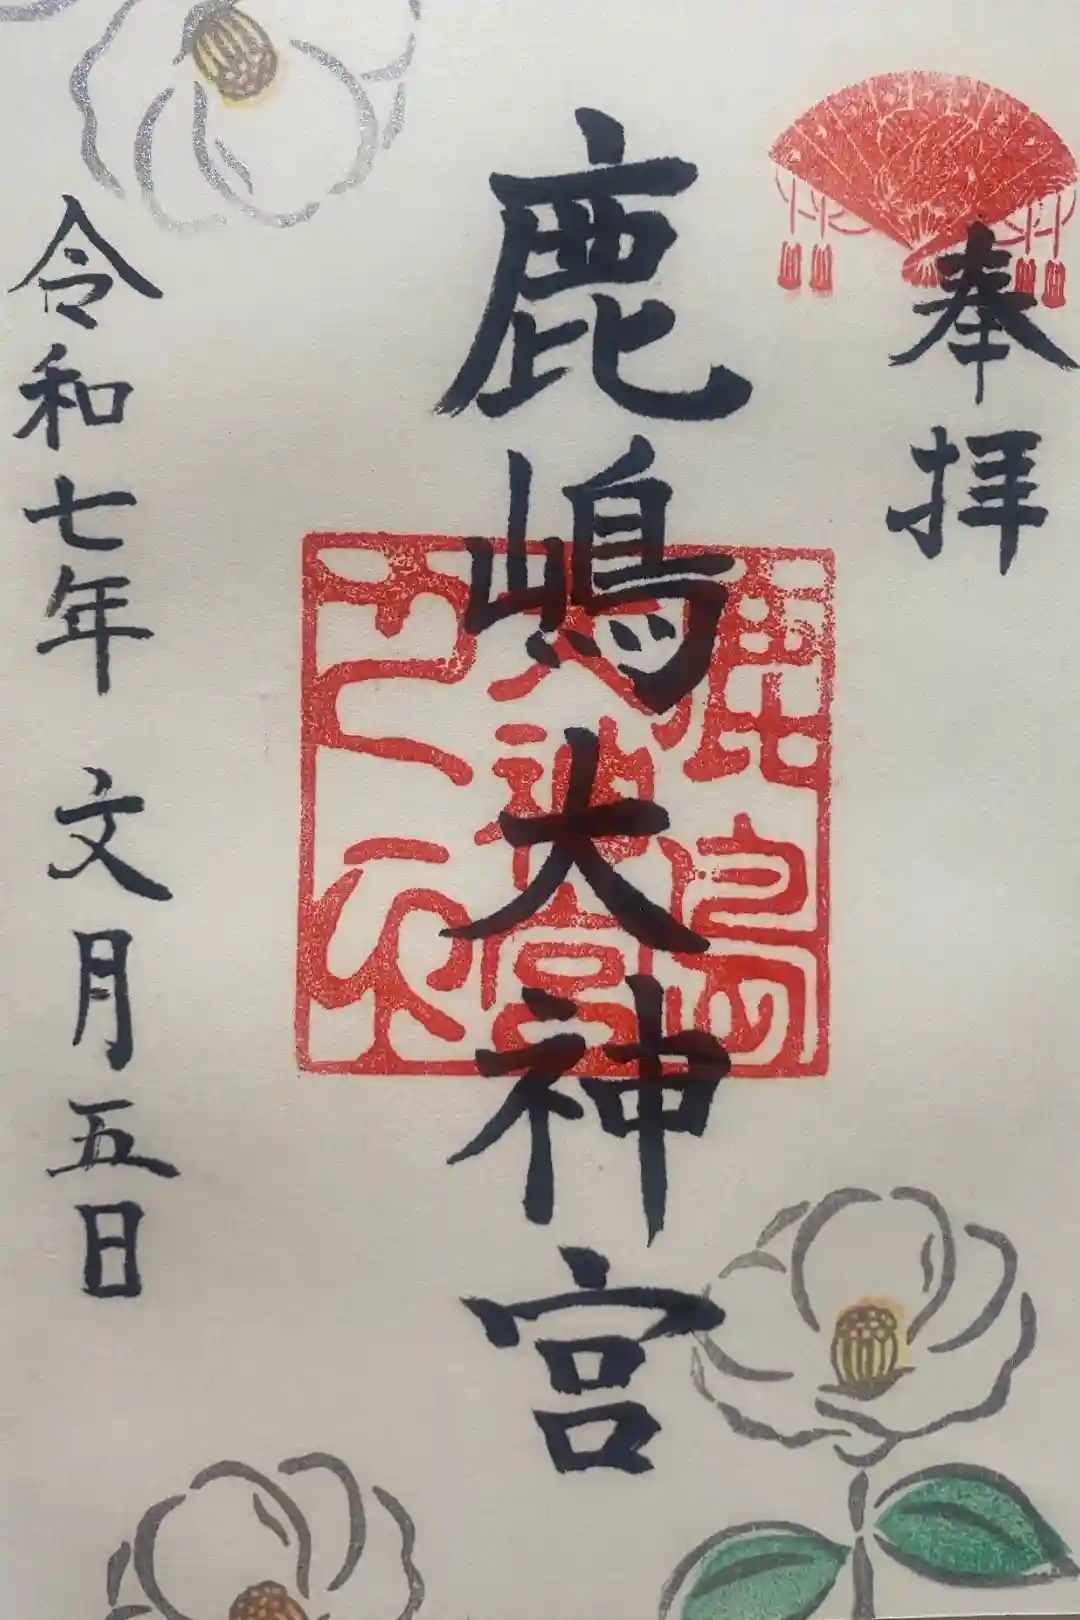 奉拝
鹿嶋大神宮
鹿島大神宮之印
令和七年 文月五日